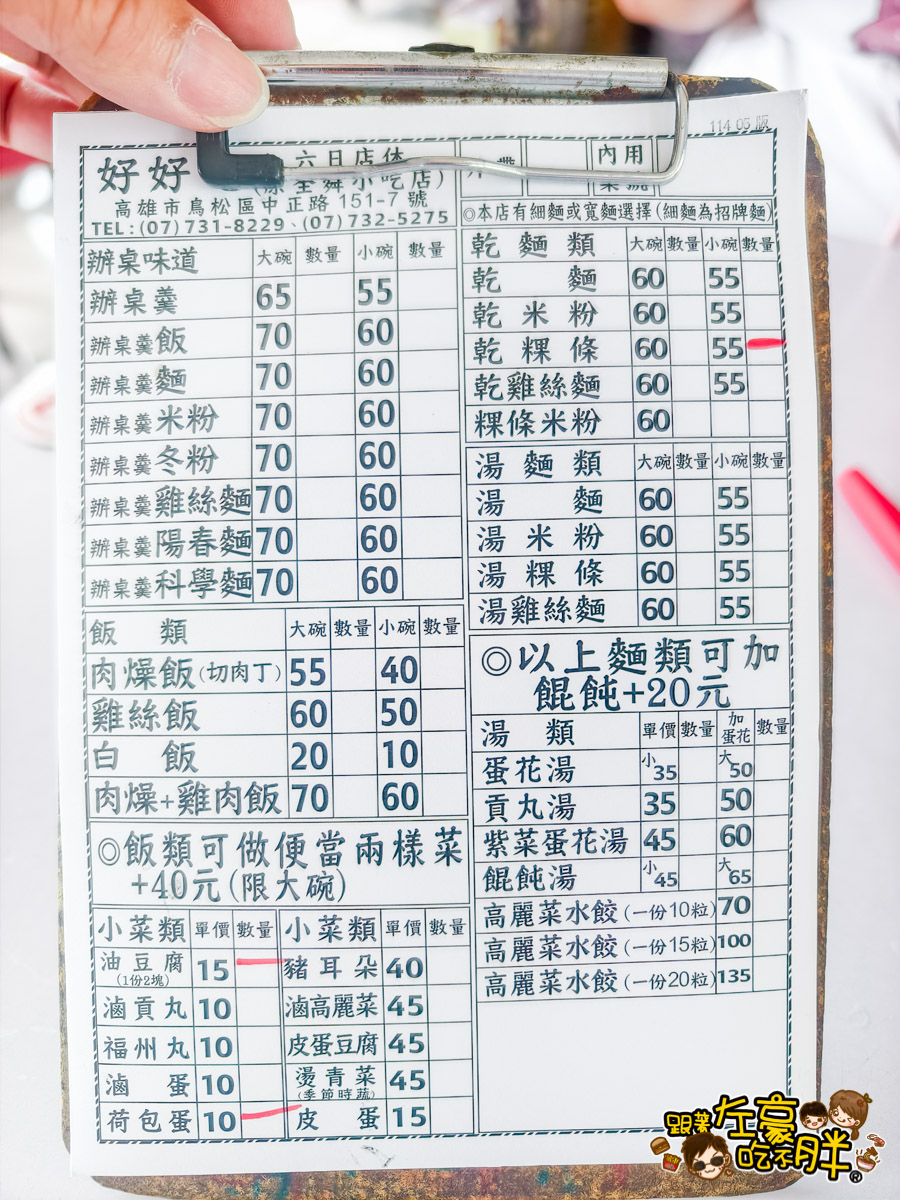 114 05 版
好好
六日店休
(原全舜小吃店)
高雄市鳥松區中正路 151-7 號
TEL:(07)731-8229、(07)732-5275
內用
◎本店有細麵或寬麵選擇(細麵為招牌麵)
辦桌味道 大碗 數量 小碗 數量
辦桌羹 65 55
辦桌羹飯 70 60
辦桌羹麵 70 60
辦桌羹米粉 70 60
辦桌羹冬粉 70 60
辦桌羹雞絲麵 70 60
辦桌羹陽春麵 70 60
辦桌羹科學麵 70 60
飯類 大碗 數量 小碗 數量
肉燥飯(切肉丁) 55 40
雞絲飯 60 50
白飯 20 10
肉燥+雞肉飯 70 60
◎飯類可做便當兩樣菜
+40元(限大碗)
小菜類 單價 數量 小菜類 單價 數量
油豆腐 15 豬耳朵 40
(1份2塊)
滷貢丸 10 滷高麗菜 45
福州丸 10 皮蛋豆腐 45
滷蛋 10 燙青菜 45
(季節時蔬)
荷包蛋 10 皮蛋 15
乾麵類 大碗 數量 小碗 數量
乾麵 60 55
乾米粉 60 55
乾粿條 60 55
乾雞絲麵 60 55
粿條米粉 60
湯麵類 大碗 數量 小碗 數量
湯麵 60 55
湯米粉 60 55
湯粿條 60 55
湯雞絲麵 60 55
◎以上麵類可加
餛飩+20元
湯類 單價 數量 加蛋花 數量
蛋花湯 小35 大50
貢丸湯 35 50
紫菜蛋花湯 45 60
餛飩湯 小45 大65
高麗菜水餃(一份10粒) 70
高麗菜水餃(一份15粒) 100
高麗菜水餃(一份20粒) 135
跟著左豪吃不胖®